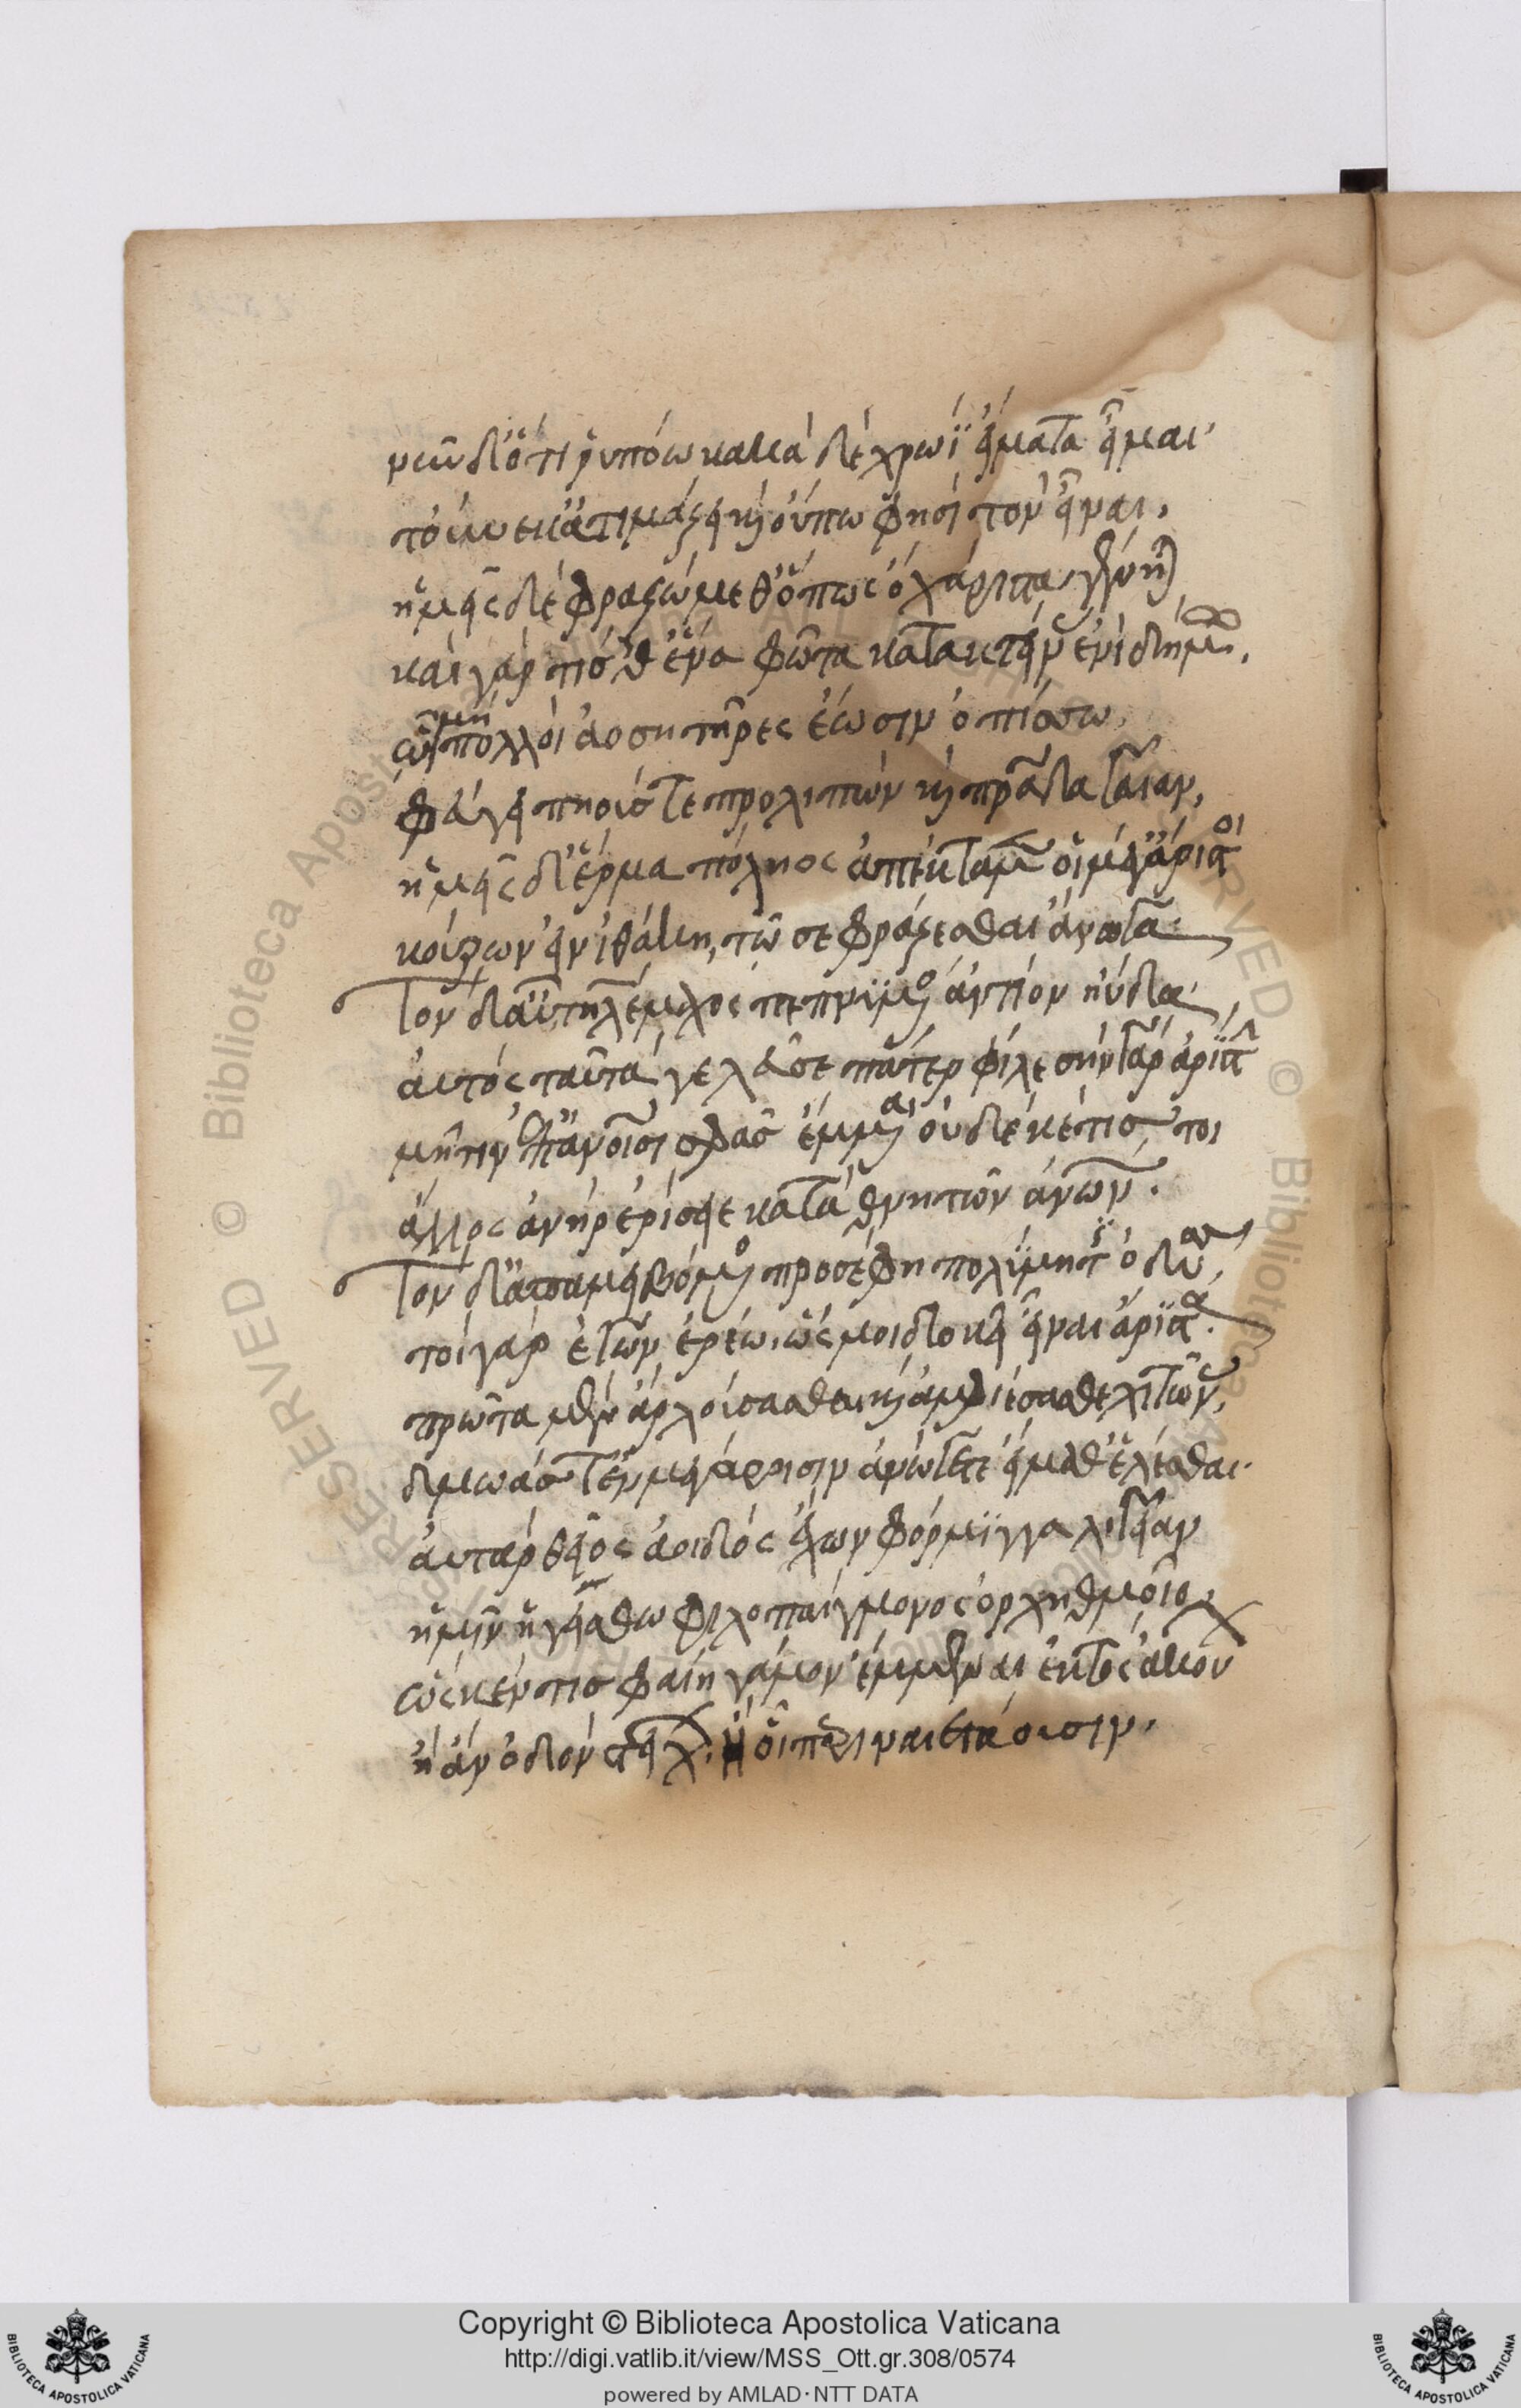 νῦν δ' ὅτι ῥυπόω κακὰ δὲ χροῒ εἵματα εἷμαι·
τούνεκ' ἀτιμάζει με καὶ οὔπω φησὶ τὸν εἶναι,
ἡμεῖς δὲ φραζώμεθ' ὅπως ὄχ' ἄριστα γένηται
καὶ γάρ τίς θ' ἕνα φῶτα κατακτείνας ἐνὶ δήμῳ,
ᾧ μὴ πολλοὶ ἀοσσητῆρες ἔωσιν ὀπίσσω,
φεύγει πηούς τε προλιπὼν καὶ πατρίδα γαῖαν,
ἡμεῖς δ' ἕρμα πόληος ἀπέκταμεν οἳ μέγ' ἄριστοι
κούρων εἰν ἰθάκῃ, τῶ σε φράζεσθαι ἄνωγα·
Τὸν δ' αὖ τηλέμαχος πεπνυμένος ἀντίον ηὔδα·
αὐτὸς ταῦτά γε λεῦσε πάτερ φίλε σὴν γὰρ ἀρίστην
μῆτιν ἐπ' ἀνθρώπους φασ' ἔμμεναι οὐδέ κέ τίς τοι
ἄλλος ἀνὴρ ἐρίσειε καταθνητῶν ἀνθρώπων.
Τὸν δ' ἀπαμειβόμενος προσέφη πολύμητις ὀδυσσεύς,
τοιγὰρ ἐγὼν ἐρέω, ὥς μοι δοκεῖ εἶναι ἄριστα.
πρῶτα μὲν ἂρ λούσασθε καὶ ἀμφιέσασθε χιτῶνας,
δμωὰς τ' ἐν μεγάροισιν ἀνώγετε εἵμαθ' ἑλέσθαι·
αὐτὰρ θεῖος ἀοιδὸς ἔχων φόρμιγγα λίγειαν
ἡμῖν ἡγείσθω φιλοπαίγμονος ὀρχηθμοῖο,
ὥς κέν τις φαίη γάμον ἔμμεναι ἐκτὸς ἀκούων
ἢ ἀν' ὁδὸν στείχων, ἢ οἳ περιναιετάουσιν,
Copyright © Biblioteca Apostolica Vaticana
http://digi.vatlib.it/view/MSS_Ott.gr.308/0574
powered by AMLAD·NTT DATA